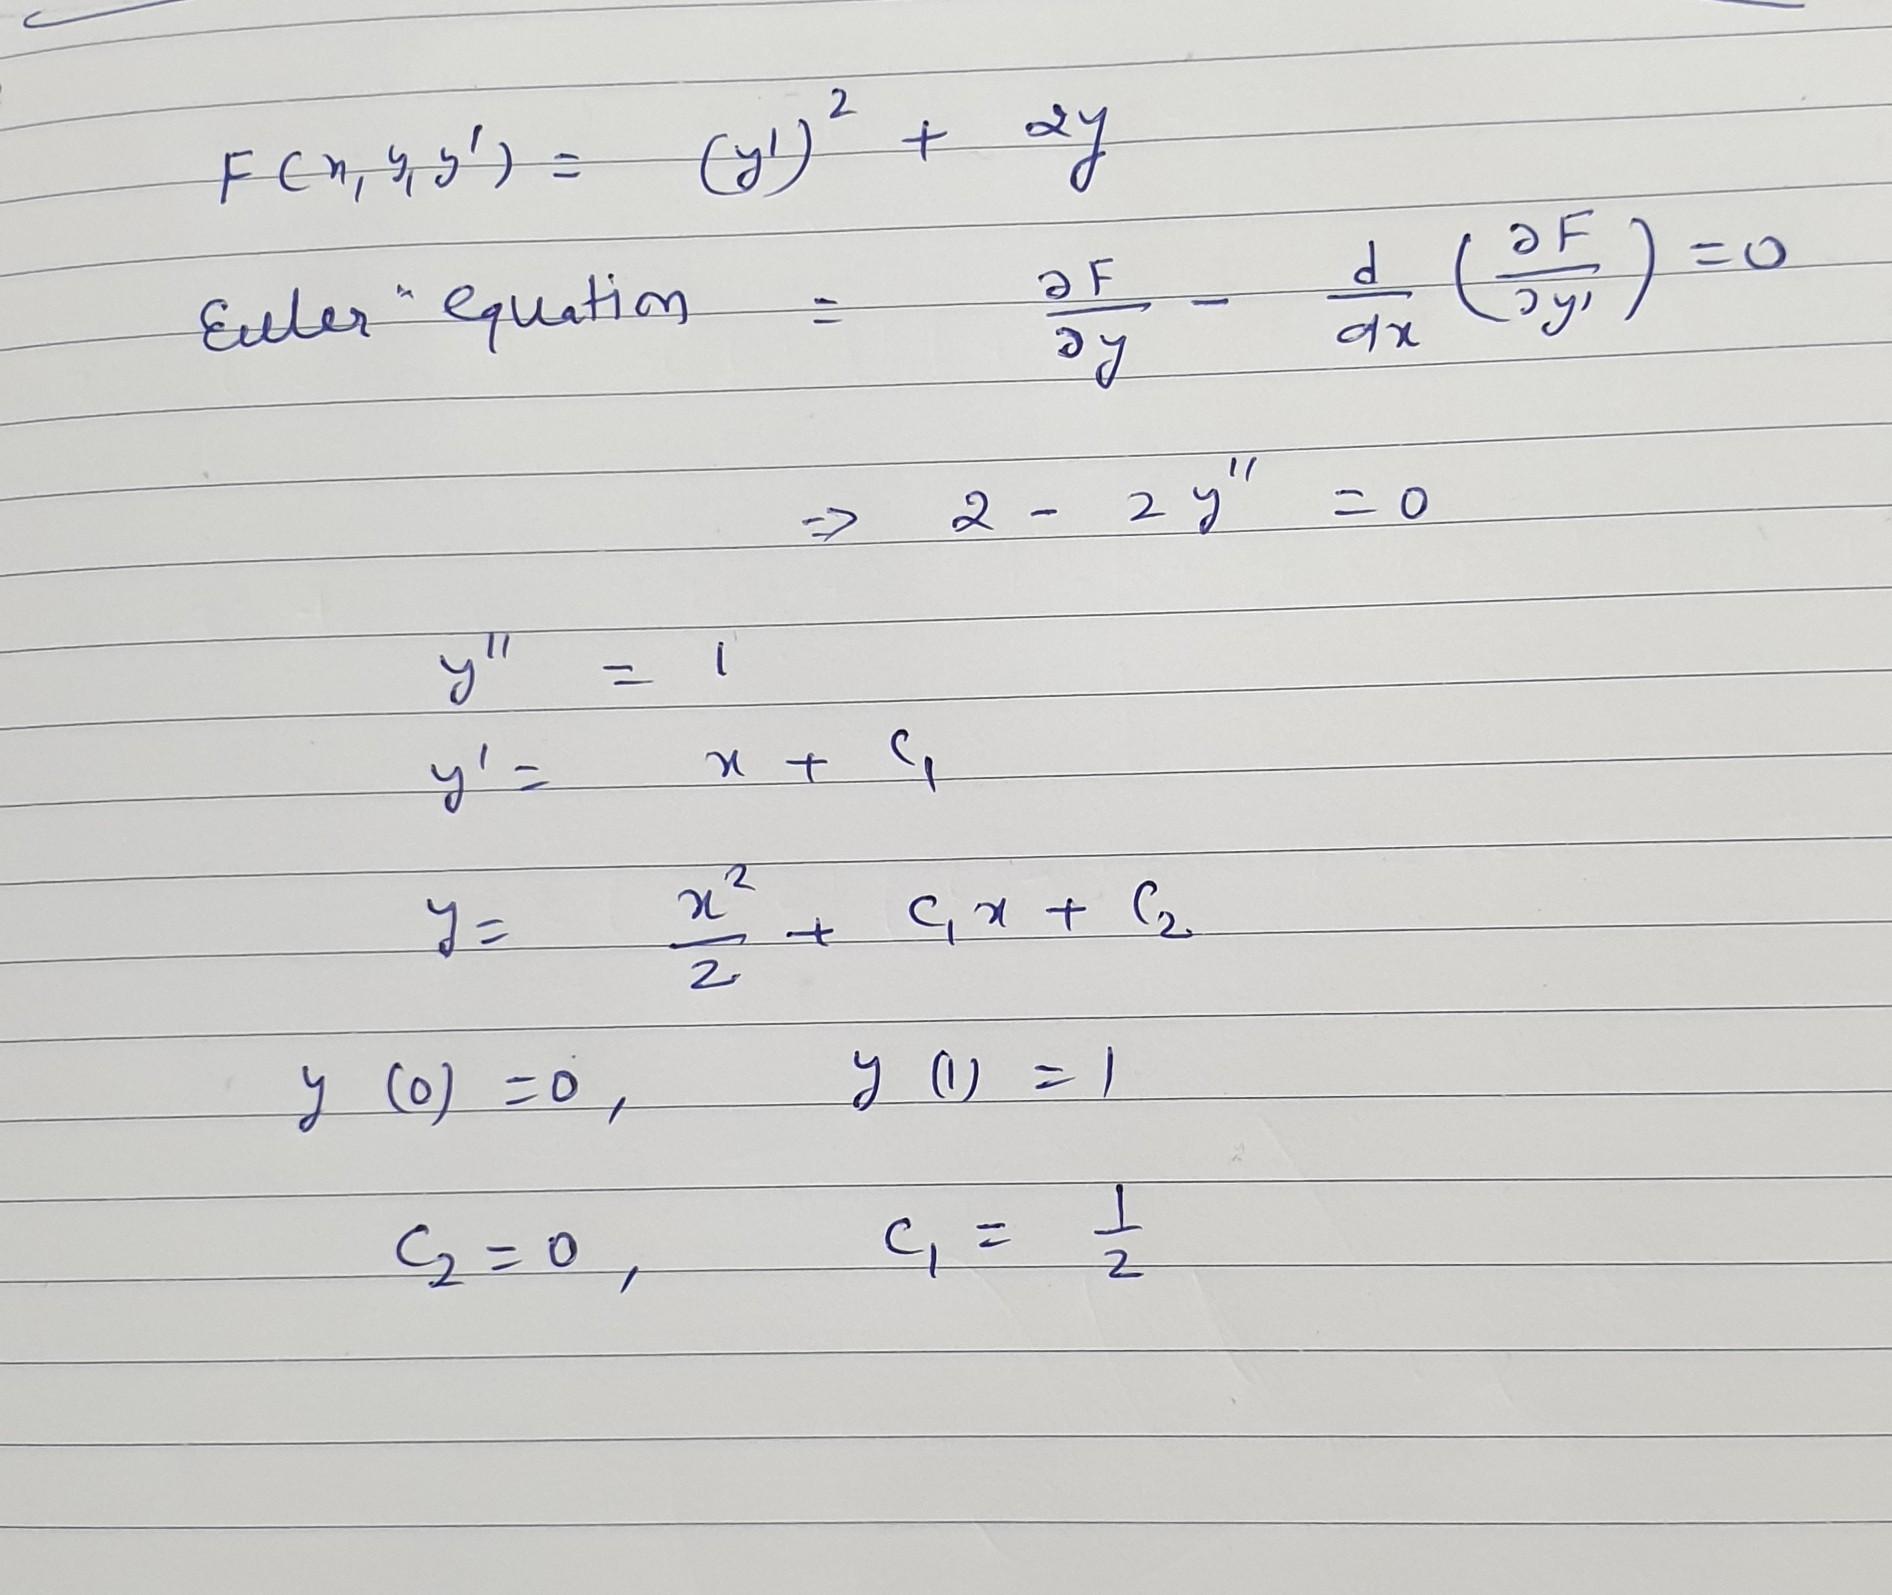 F(x, y, y') = (y')² + 2y
Euler" equation = ∂F/∂y - d/dx (∂F/∂y') = 0
⇒ 2 - 2y'' = 0
y'' = 1
y' = x + C₁
y = x²/2 + C₁x + C₂
y (0) = 0, y (1) = 1
C₂ = 0, C₁ = 1/2